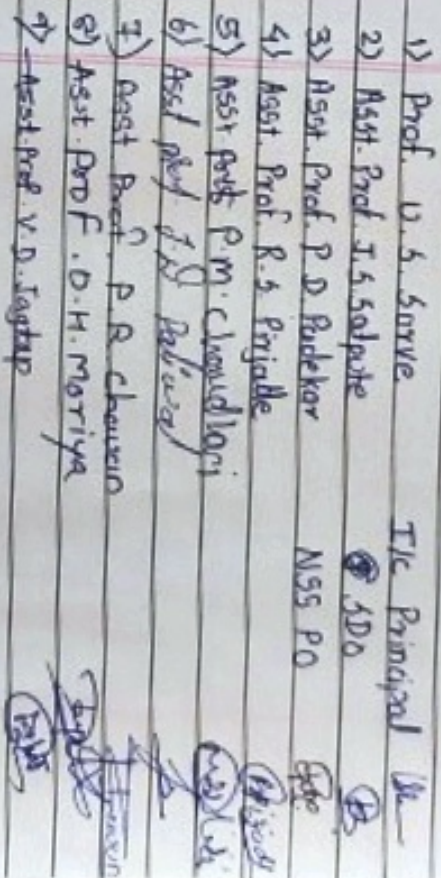 1) Prof. U. S. Sarve I/c Principal
2) Asst. Prof. I. S. Satpute SDO
3) Asst. Prof. P. D. Padekar NSS PO
4) Asst. Prof. R. S. Pinjatle
5) Asst Prof P. M. Choudhari
6) Asst Prof. J. D. Paliwal
7) Asst Prof. P R Chauvin
8) Asst. Prof. O. H. Moriya
9) Asst. Prof. V. D. Jagtap